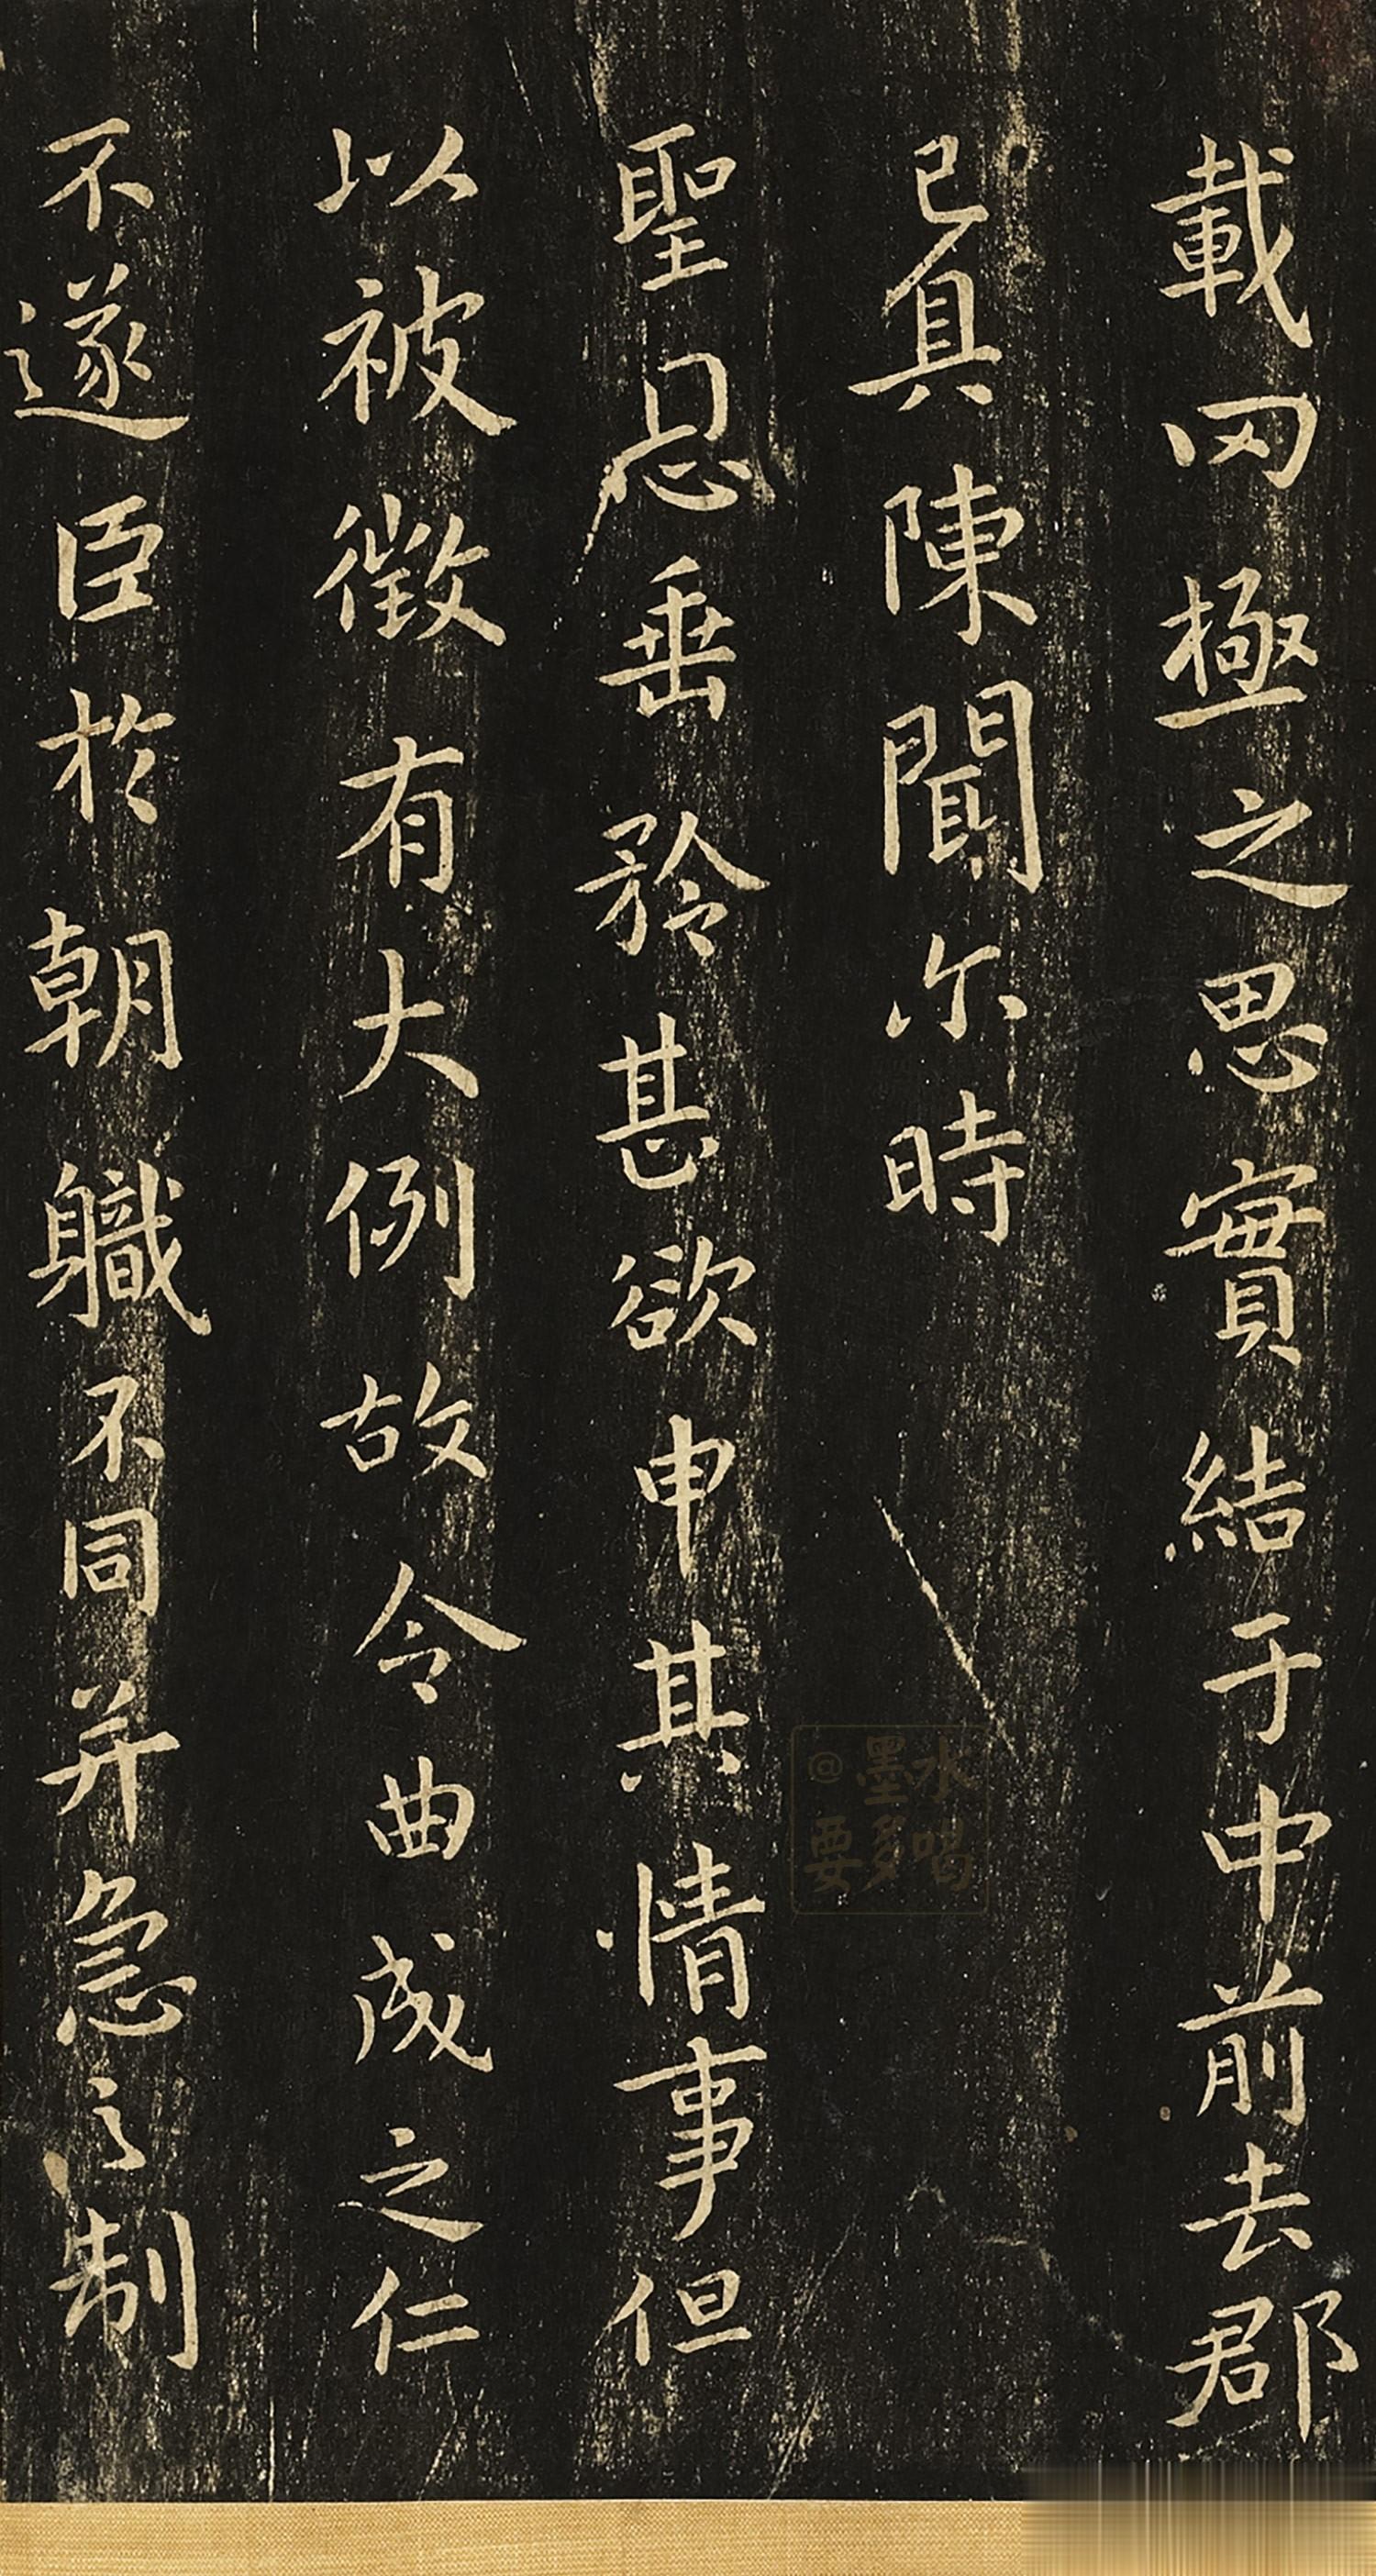 載罔極之思實結于中前去郡
已具陳聞尓時
聖恩垂矜甚欲申其情事但
以被徵有大例故令曲成之仁
不遂臣於朝職不同并急之制
@墨水
要多喝